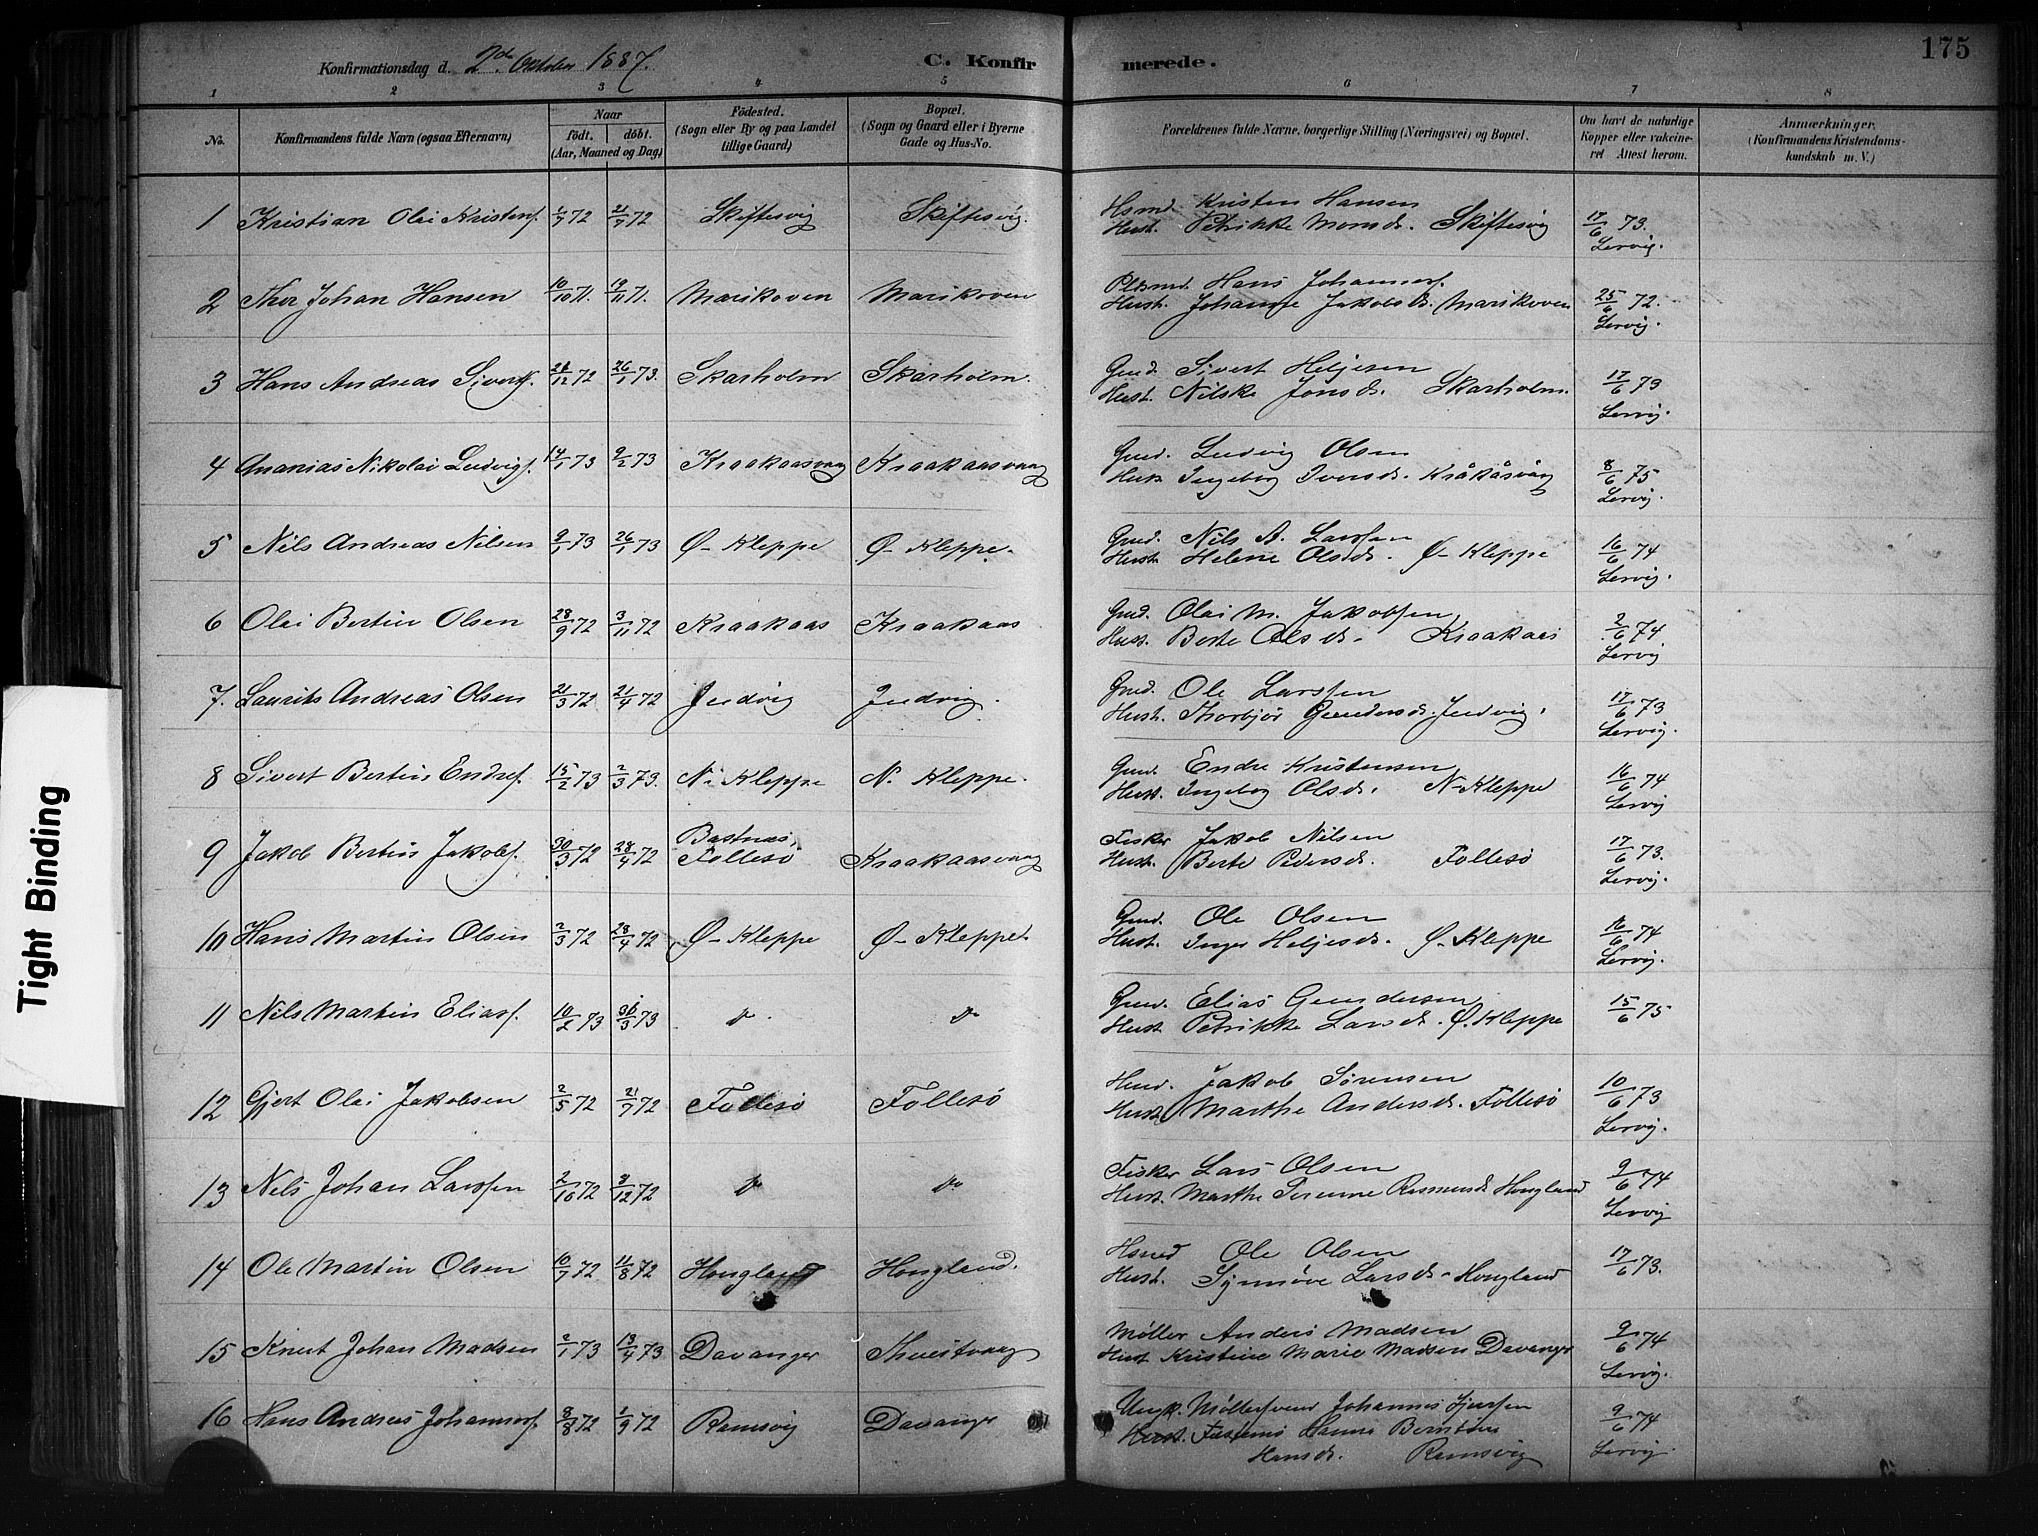 175
Konfirmationsdag d. 2den Oktober 1887.
C. Konfirmerede.
1 2 3 4 5 6 7 8
No.
Konfirmandens fulde Navn (ogsaa Efternavn)
Naar
født. døbt.
(Aar, Maaned og Dag)
Fødested.
(Sogn eller By og paa Landet
tillige Gaard)
Bopæl.
(Sogn og Gaard eller i Byerne
Gade og Hus-No.
Forældrenes fulde Navne, borgerlige Stilling (Næringsvei) og Bopæl.
Om havt de naturlige
Kopper eller vakcine-
ret Attest herom.
Anmærkninger.
(Konfirmandens Kristendoms-
kundskab m. V.)
1 Kristian Olai Kristens. 2/7 72 21/7 72 Skiftesvig Skiftesvig.
Hsmd. Kristen Hansen
Hust. Petrikke Monsd. Skiftesvig
17/6 73. Lervig.
2 Thor Johan Hansen 10/10 71. 19/11 71. Marikoven Marikoven
Plsmd. Hans Johanness.
Hust. Johanne Jakobsd. Marikoven
25/6 72. Lervig.
3 Hans Andreas Siverts. 28/12 72 26/1 73. Skarholm Skarholm.
Gmd. Sivert Heljesen
Hust. Nilske Jonsd. Skarholm.
17/6 73 Lervig.
4 Ananias Nikolai Ludvigs. 14/1 73 9/2 73 Kraakaasvaag Kraakaasvaag
Gmd. Ludvig Olsen
Hust. Ingeborg Iversd. Kråkåsvåg
8/6 75 Lervig.
5 Nils Andreas Nilsen 9/1 73 26/1 73 Ø- Kleppe Ø- Kleppe.
Gmd. Nils A. Larssen
Hust. Helene Olsd. Ø- Kleppe
16/6 74 Lervig.
6 Olai Bertin Olsen 28/9 72 3/11 72 Kraakaas Kraakaas
Gmd. Olai M. Jakobsen
Hust. Berte Olsd. Kraakaas
2/6 74 Lervig
7. Laurits Andreas Olsen 21/3 72 21/4 72 Judvig Judvig.
Gmd. Ole Larssen
Hust. Thorbjør Gundersd. Judvig.
17/6 73 Lervig.
8 Sivert Bertin Endres. 15/2 73 2/3 73. N. Kleppe N. Kleppe.
Gmd. Endre Kristensen
Hust. Ingeborg Olsd. N- Kleppe
16/6 74 Lervig
9 Jakob Bertin Jakobs. 30/3 72 28/4 72 Bastnæs, Follesø Kraakaasvaag
Fisker Jakob Nilsen
Hust. Berte Pedersd. Follesø
17/6 73. Lervig.
10 Hans Martin Olsen 2/3 72 28/4 72 Ø- Kleppe Ø- Kleppe.
Gmd. Ole Olsen
Hust. Inger Heljesd. Ø- Kleppe
16/6 74 Lervig.
11 Nils Martin Eliass. 10/2 73 /3 73 do. do
Gmd. Elias Gundersen
Hust. Petrikke Larsd. Ø. Kleppe
15/6 75
12 Gjert Olai Jakobsen 2/5 72 21/7 72 Follesø Follesø
Hmd. Jakob Sørensen
Hust. Marthe Andersd. Follesø
10/6 73 Lervig.
13 Nils Johan Larssen 2/10 72 8/12 72 do do
Fisker Lars Olsen
Hust. Marthe Serenne Rasmusd. Hougland
9/6 74 Lervig
14 Ole Martin Olsen 10/7 72 11/8 72 Hougland Hougland.
Hsmd Ole Olsen
Hust. Synnøve Larsd. Hougland
17/6 73.
15 Knut Johan Madsen 2/1 73 13/4 73 Davanger Thveitvaag
Møller Anders Madsen
Hust Kristine Marie Madsen Davanger
9/6 74 Lervig.
16 Hans Andreas Johanness. 8/8 72 1/9 72 Ramsvig Davanger
Ungk. Møllersvend Johannes
Hanna
Hansd. Ramsvig
9/6 74 Lervig.
Tight Binding